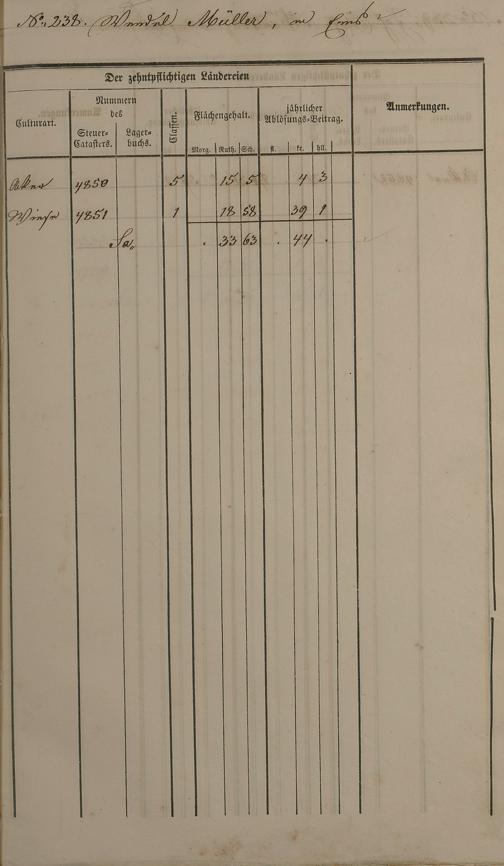 No. 238. Wendel Müller, in Ems
Der zehntpflichtigen Ländereien
Culturart.
Nummern des
Steuer-Catasters.
Lager-buchs.
Classen.
Flächengehalt.
Morg. Ruth. Sch.
jährlicher Ablösungs-Beitrag.
fl. kr. hll.
Anmerkungen.
Aker 4850 5 15 5 4 3
Wiese 4851 1 18 58 39 1
Sa. . 33 63 . 44 .